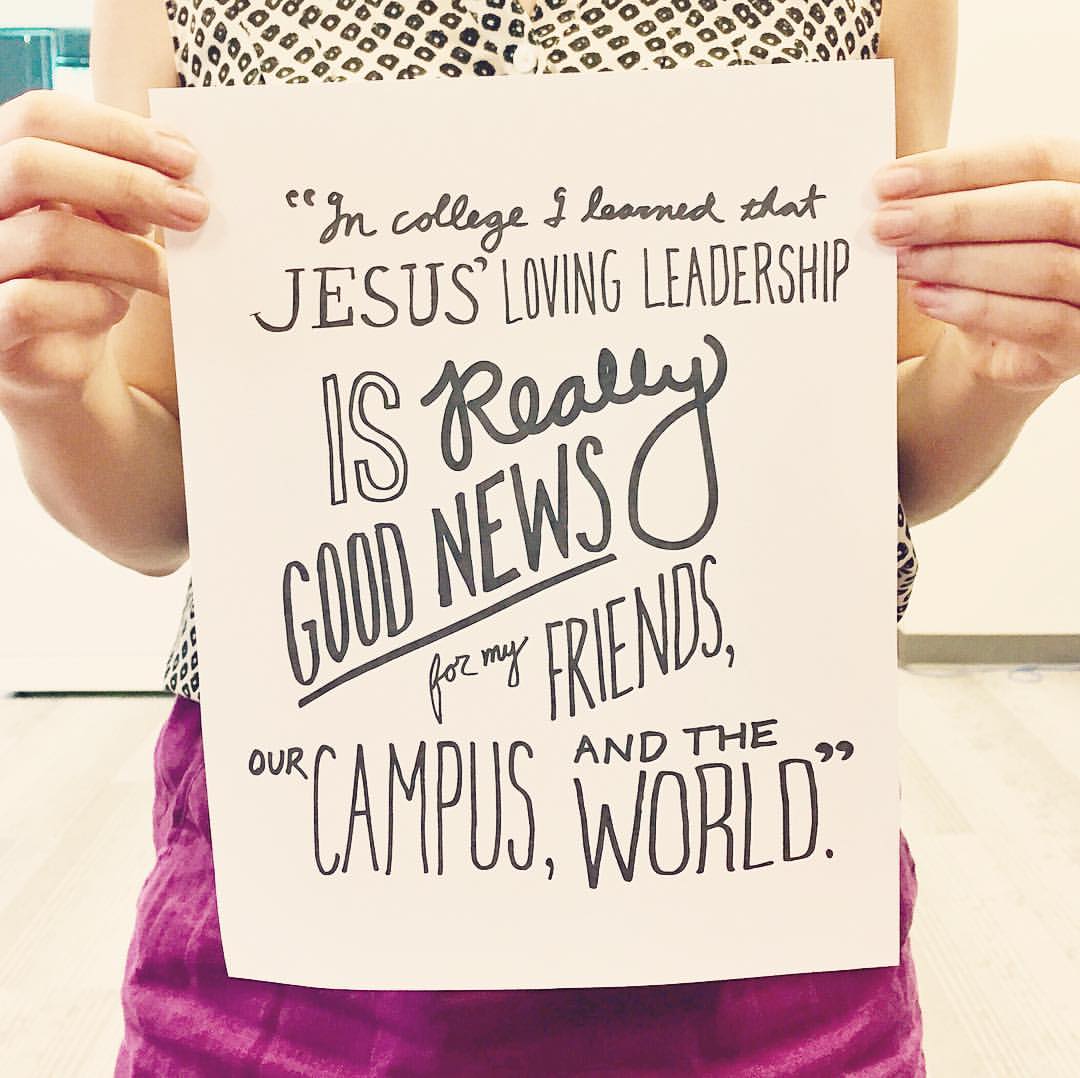 “In college I learned that
JESUS’ LOVING LEADERSHIP
IS Really
GOOD NEWS
for my FRIENDS,
OUR CAMPUS, AND THE
WORLD”.